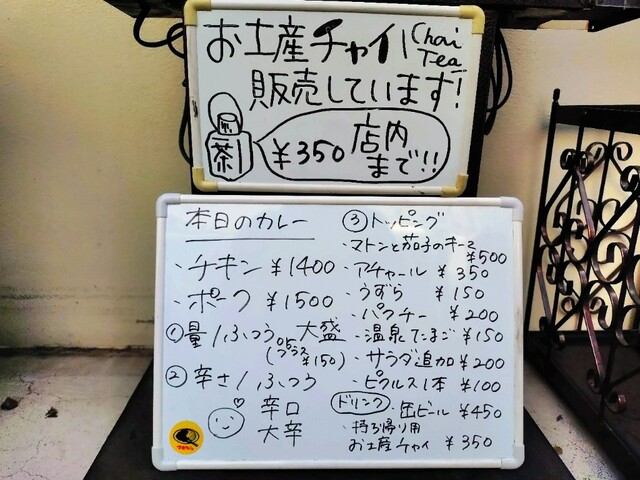 お土産チャイ! Chai Tea
販売しています!
茶
¥350 店内まで!!
本日のカレー
・チキン ¥1400
・ポーク ¥1500
①量/ふつう or 大盛
(プラス ¥150)
②辛さ/ふつう
辛口
大辛
③トッピング
・マトンと茄子のキーマ
¥500
・アチャール ¥350
・うずら ¥150
・パクチー ¥200
・温泉たまご ¥150
・サラダ追加 ¥200
・ピクルス1本 ¥100
ドリンク ・缶ビール ¥450
・持ち帰り用
お土産チャイ ¥350